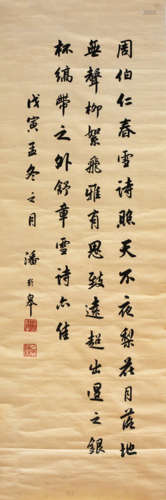 周伯仁春雪詩瞧天不夜梨花月落地
無聲柳絮飛雅有思致遠超出退之銀
杯縞帶之外舒章雪詩亦佳
戊寅孟冬之月 潘齡皋